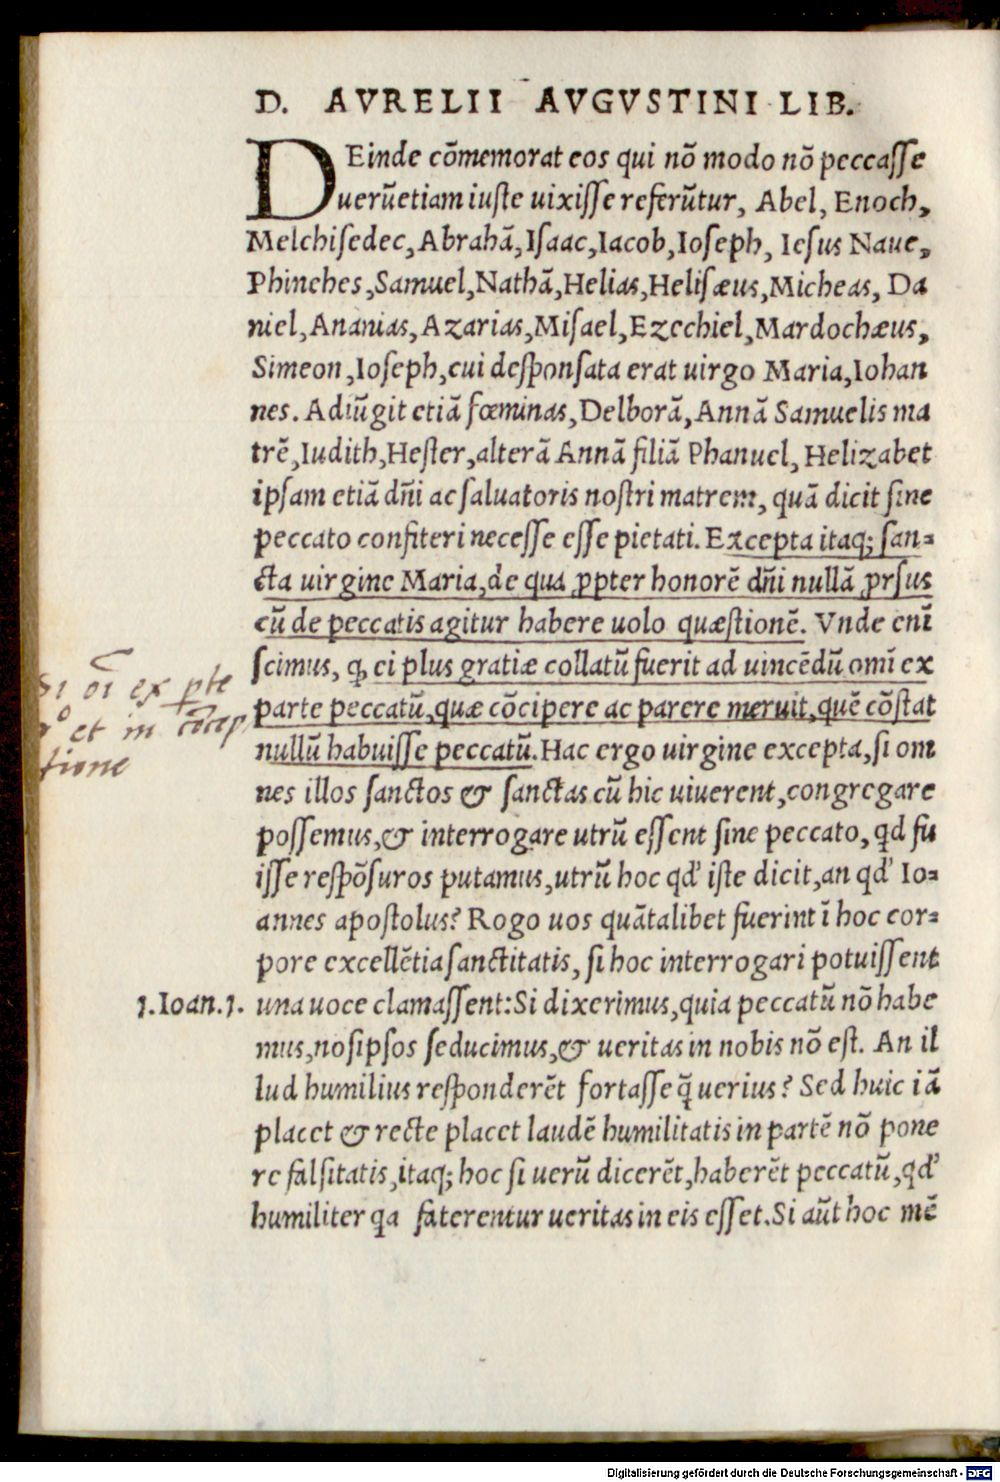 D. AVRELII AVGVSTINI LIB.
DEinde cõmemorat eos qui nõ modo nõ peccaſſe
uerũetiam iuſte uixiſſe referũtur, Abel, Enoch,
Melchiſedec, Abrahã, Iſaac, Iacob, Ioſeph, Ieſus Naue,
Phinehes, Samuel, Nathã, Helias, Heliſæus, Micheas, Da
niel, Ananias, Azarias, Miſael, Ezechiel, Mardochæus,
Simeon, Ioſeph, cui deſponſata erat uirgo Maria, Iohan
nes. Adiũgit etiã fœminas, Delborã, Annã Samuelis ma
trẽ, Iudith, Heſter, alterã Annã filiã Phanuel, Helizabet
ipſam etiã dñi ac ſaluatoris noſtri matrem, quã dicit ſine
peccato confiteri neceſſe eſſe pietati. Excepta itaq; ſan-
cta uirgine Maria, de qua ꝓpter honorẽ dñi nullã ꝓrſus
cũ de peccatis agitur habere uolo quæſtionẽ. Vnde enĩ
ſcimus, ꝙ ei plus gratiæ collatũ fuerit ad uincẽdũ omĩ ex
parte peccatũ, quæ cõcipere ac parere meruit, quẽ cõſtat
nullũ habuiſſe peccatũ. Hac ergo uirgine excepta, ſi om
nes illos ſanctos & ſanctas cũ hic uiuerent, congregare
poſſemus, & interrogare utrũ eſſent ſine peccato, qd fu
iſſe reſpõſuros putamus, utrũ hoc qd' iſte dicit, an qd' Io-
annes apoſtolus? Rogo uos quãtalibet fuerint ĩ hoc cor-
pore excellẽtia ſanctitatis, ſi hoc interrogari potuiſſent
1. Ioan. 1. una uoce clamaſſent: Si dixerimus, quia peccatũ nõ habe
mus, noſipſos ſeducimus, & ueritas in nobis nõ eſt. An il
lud humilius reſponderẽt fortaſſe q̃ uerius? Sed huic iã
placet & recte placet laudẽ humilitatis in partẽ nõ pone
re falſitatis, itaq; hoc ſi uerũ dicerẽt, haberẽt peccatũ, qd'
humiliter qa faterentur ueritas in eis eſſet. Si aũt hoc mẽ
oĩ ex ꝑte
et in cõcep
tione
Digitalisierung gefördert durch die Deutsche Forschungsgemeinschaft - DFG